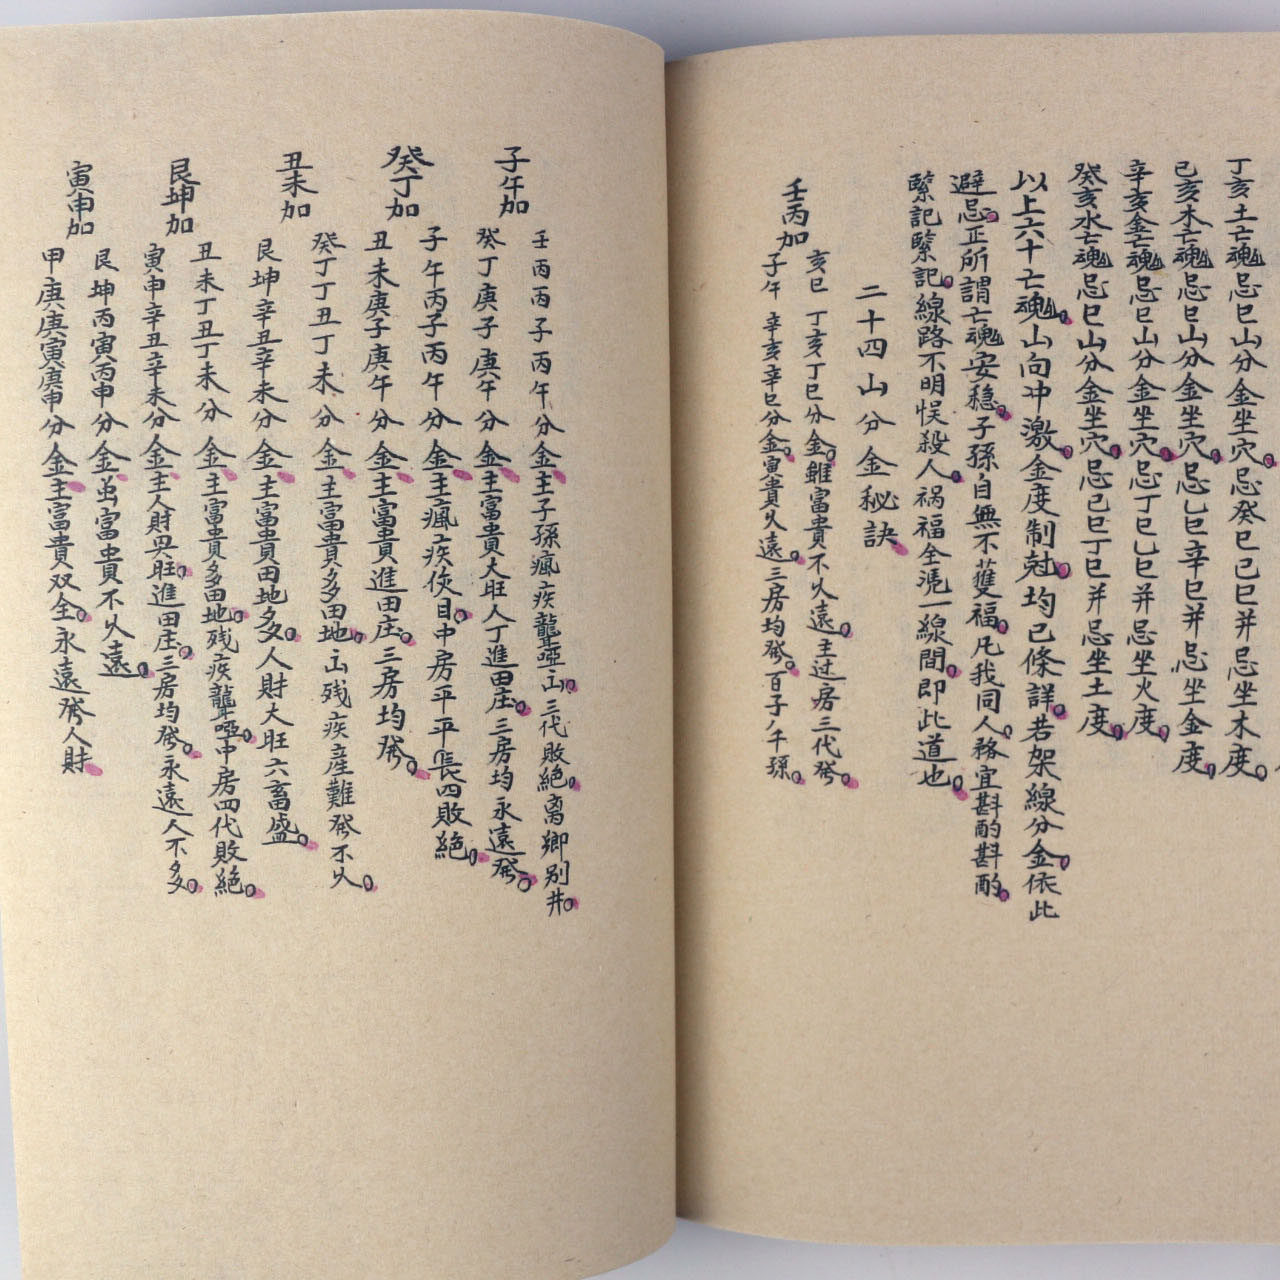 丁亥土亡魂忌巳山分金坐穴。忌癸巳己巳并忌坐木度。
己亥木亡魂忌巳山分金坐穴。忌乙巳辛巳并忌坐金度。
辛亥金亡魂忌巳山分金坐穴。忌丁巳乙巳并忌坐火度。
癸亥水亡魂忌巳山分金坐穴。忌己巳丁巳并忌坐土度。
以上六十亡魂。山向冲激。金度制尅。均已條詳。若架線分金。依此
避忌。正所謂亡魂安穩。子孫自無不獲福。凡我同人。務宜斟酌斟酌。
緊記緊記。線路不明悞殺人。禍福全凴一線間。即此道也。
二十四山分金秘訣。
壬丙加
亥巳 丁亥丁巳分金。雖富貴不久遠。主过房三代發。
子午 辛亥辛巳分金。富貴久遠。三房均發。百子千孫。
子午加
壬丙丙子丙午分金主子孫瘋疾聾啞。三代敗絕。离鄉别井。
癸丁庚子庚午分金主富貴大旺人丁進田庄。三房均永遠發。
癸丁加
子午丙子丙午分金主瘋疾損目。中房平平長四敗絕。
丑未庚子庚午分金主富貴進田庄。三房均發。
丑未加
癸丁丁丑丁未分金主富貴多田地。出残疾產難發不久。
艮坤辛丑辛未分金主富貴田地多。人財大旺六畜盛。
艮坤加
丑未丁丑丁未分金主富貴多田地。残疾聾啞。中房四代敗絕。
寅申辛丑辛未分金主人財興旺。進田庄。三房均發。永遠人不多。
寅申加
艮坤丙寅丙申分金虽富貴不久遠。
甲庚庚寅庚申分金主富貴双全。永遠發人財。